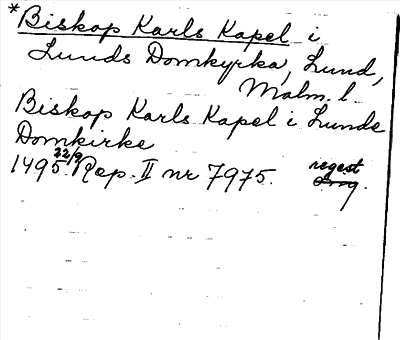 *Biskop Karls Kapel i
Lunds Domkyrka, Lund,
Malm. l.
Biskop Karls Kapel i Lunde
Domkirke
1495 22/9. Rep. II nr 7975. regest
Orig.